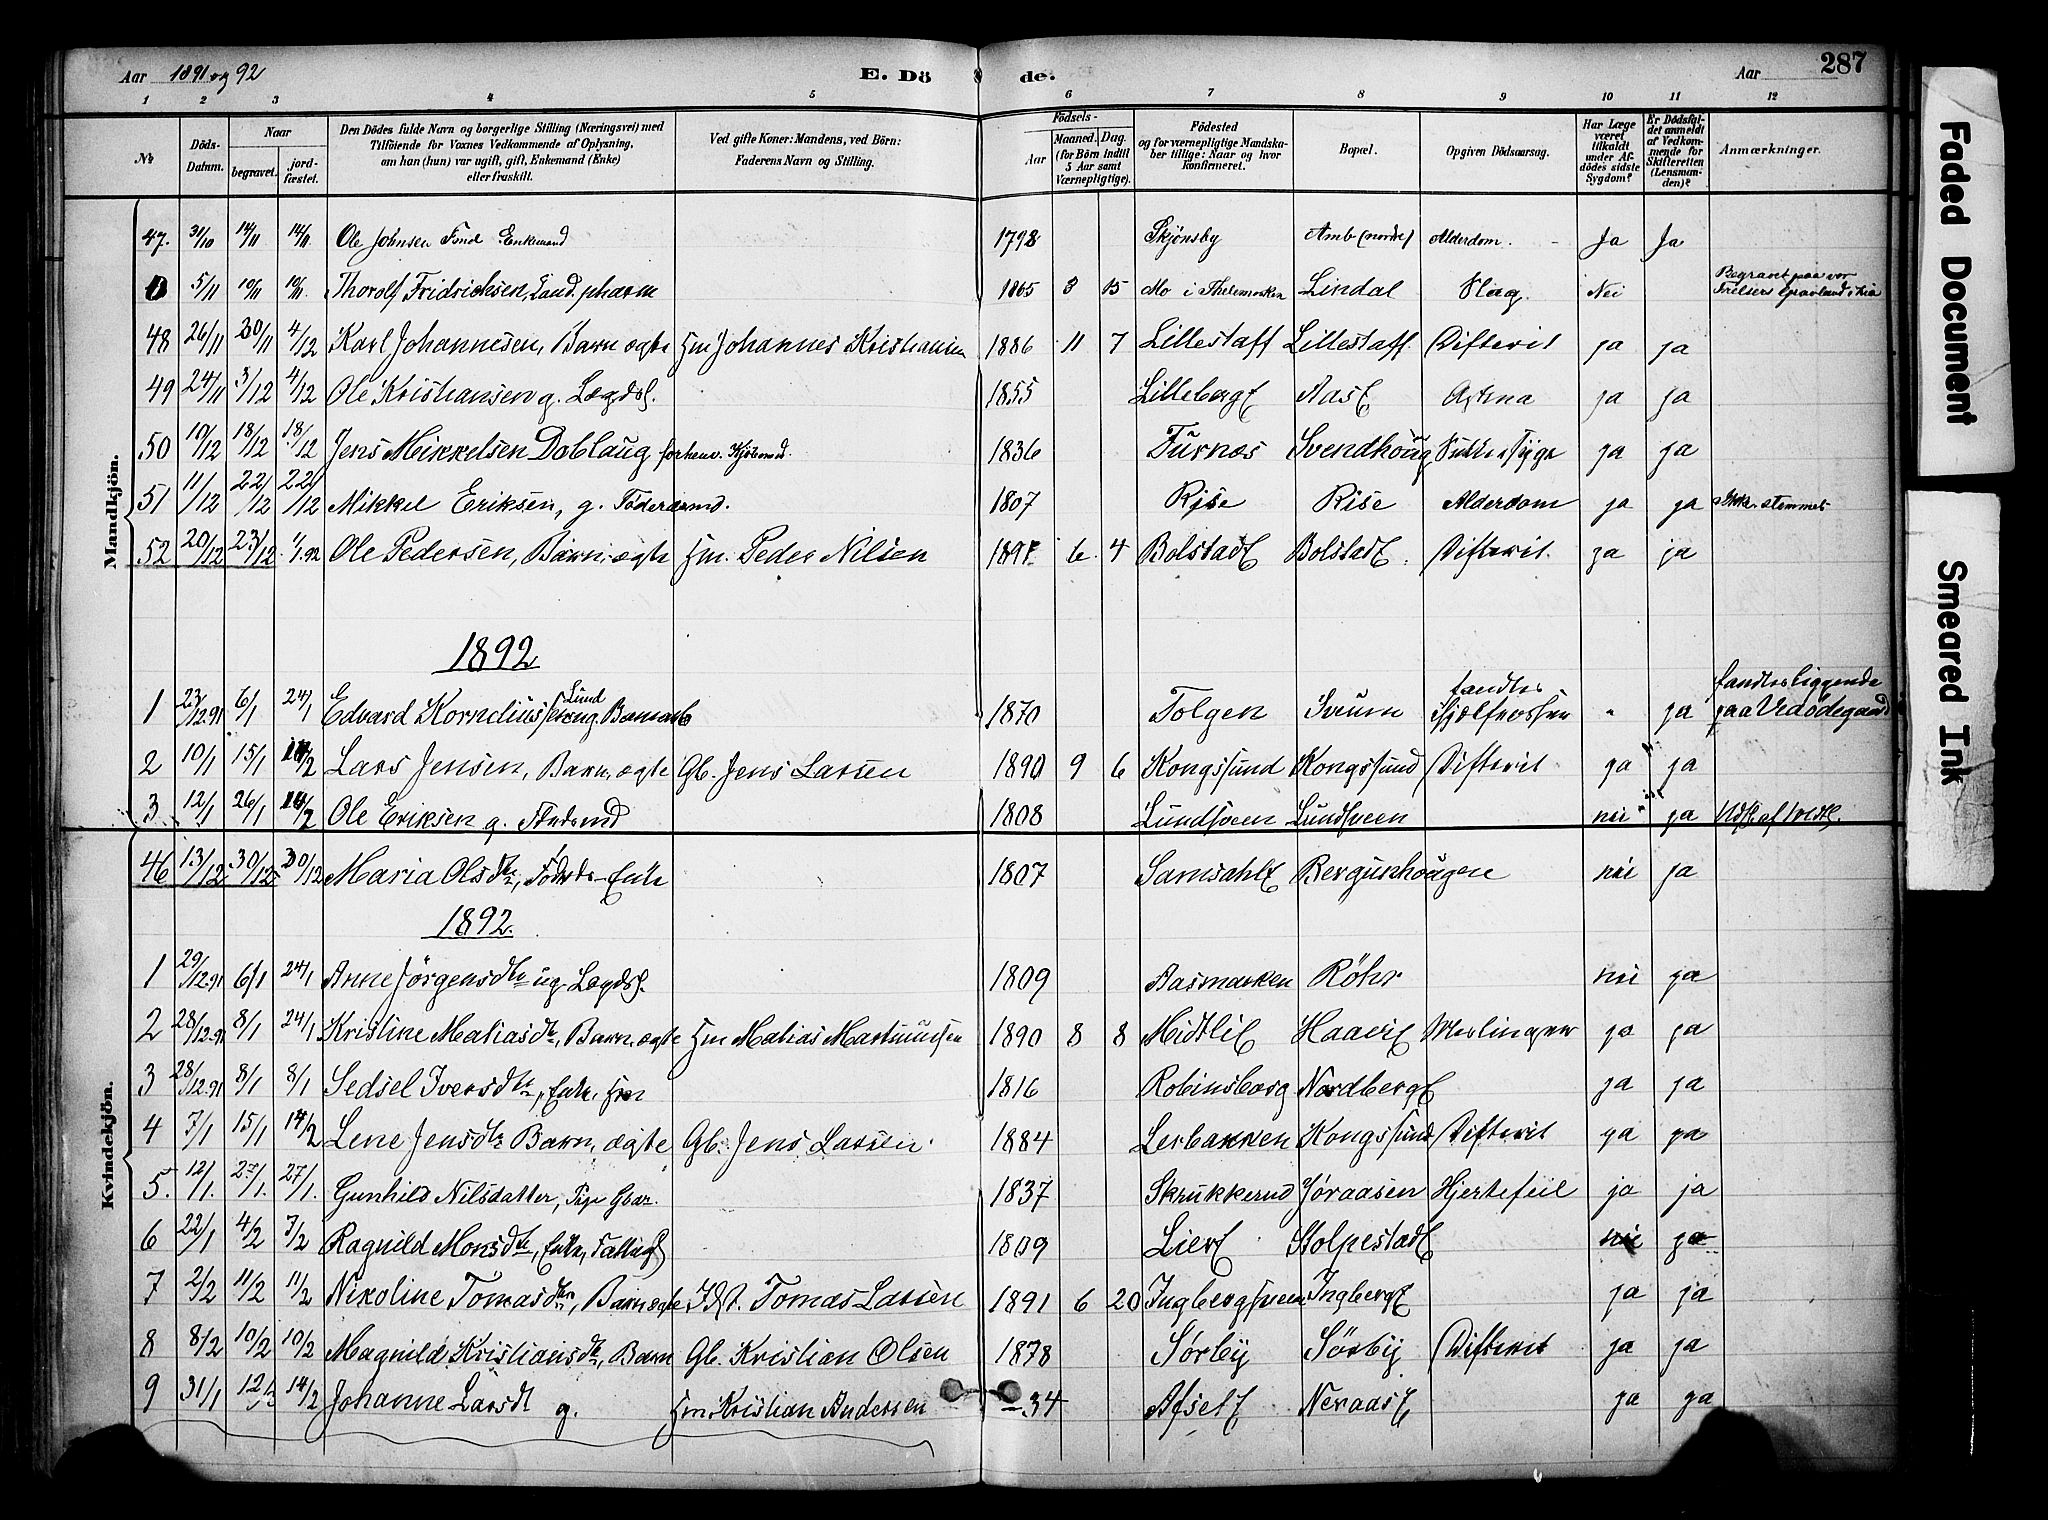 Aar 1891 og 92 E. Dö de. Aar 287
1 2 3 4 5 6 7 8 9 10 11 12
No Döds-Datum. Naar begravet. jordfæstet. Den Dödes fulde Navn og borgerlige Stilling (Næringsvei) med Tilföiende for Voxnes Vedkommende af Oplysning, om han (hun) var ugift, gift, Enkemand (Enke) eller fraskilt. Ved gifte Koner: Mandens, ved Börn: Faderens Navn og Stilling. Födsels- Aar Maaned. Dag. (for Börn indtil 5 Aar samt Værnepligtige). Födested og for værnepligtige Mandskaber tillige: Naar og hvor konfirmeret. Bopæl. Opgiven Dödsaarsag. Har Læge været tilkaldt under Afdödes sidste Sygdom? Er Dödsfaldet anmeldt af Vedkommende for Skifteretten (Lensmanden)? Anmærkninger.
Mandkjön.
47. 31/10 14/11 14/11 Ole Johnsen Enkemand 1798 Skjönsby Amb (nordre) Alderdom. Ja Ja
5/11 10/11 10/11 Thorolf Fridricksen, Cand. pharm 1865 3 15 Mo i Thelemarken Lindal Slag. Nei Begravet paa vor Frelsers Gravlund i Kra
48 26/11 30/11 4/12 Karl Johannesen, Barn ægte Hm Johannes Kristiansen 1886 11 7 Lillestaff Lillestaff. Difterit ja ja
49 24/11 3/12 4/12 Ole Kristiansen g. Lægdsl. 1855 Lilleberg Aas ja ja
50 10/12 18/12 18/12 Jens Mikkelsen Doblaug forhenv. Kjöbmd. 1836 Furnæs Svendhoug Sukkersyge ja ja
51 11/12 22/12 22/12 Mikkel Eriksen, g. Föderaamd. 1807 Rise Rise Alderdom ja ja stemmet
52 20/12 23/12 1/1.92 Ole Pedersen, Barn, ægte Hm. Peder Nilsen 1891 6 4 Bolstad Bolstad. Difterit. ja ja
1892
1 23/12.91 6/1 24/1 Edvard Kornelius Lund ug. Banearb 1870 Tolgen Sveum fandtes ihjelfrossen " ja fandtes liggende paa Vedödegaard
2 10/1 15/1 14/2 Lars Jensen, Barn, ægte Gb. Jens Larsen 1890 9 6 Kongssund Kongssund Difterit ja ja
3 12/1 26/1 14/2 Ole Eriksen g. 1808 Lundsveen Lundsveen nei ja
Kvindekjön.
46 13/12 30/12 30/12 Maria Olsdtr, Föderds-Enke 1807 Samsahl Bergunhougen nei ja
1892.
1 29/12.91 6/1 24/1 Anne Jörgensdtr ug. Lægdsl. 1809 Aasmarken Röhr nei ja
2 28/12.91 8/1 24/1 Kristine Matiasdtr, Barn, ægte Hm Matias Martinusen 1890 8 8 Midtli Haave Meslinger ja ja
3 28/12.91 8/1 8/1 Sedsel Iversdtr, Enke, Hm 1816 Robinsborg Nordberg ja ja
4 7/1 15/1 14/2 Lene Jensdtr Barn, ægte Gb. Jens Larsen. 1884 Lerbakken Kongssund Difterit ja ja
5. 12/1. 27/1. 27/1. Gunhild Nilsdatter, Pige 1837 Skrukkerud Joraasen Hjertefeil ja ja
6 22/1 4/2 7/2 Ragnild Monsdtr, Enke, Fattigl 1809 Lier Stolpestad nei ja
7 2/2 11/2 11/2 Nikoline Tomasdtr, Barn ægte Tomas Larsen 1891 6 20 Ingbergsveen Ingberg ja ja
8 8/2 10/2 10/2 Magnild Kristiansdtr, Barn Gb. Kristian Olsen 1878 Sørby Sörby Difterit ja ja
9 31/1 12/2 14/2 Johanne Larsdt g. Hm. Kristian Andersen –34 Afset Neraas ja ja
Faded Document
Smeared Ink